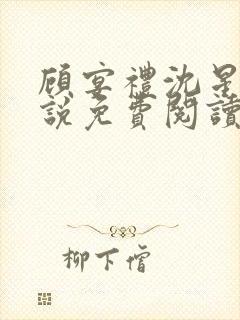 顾宴禮沈星
說免費閱讀
柳下惰